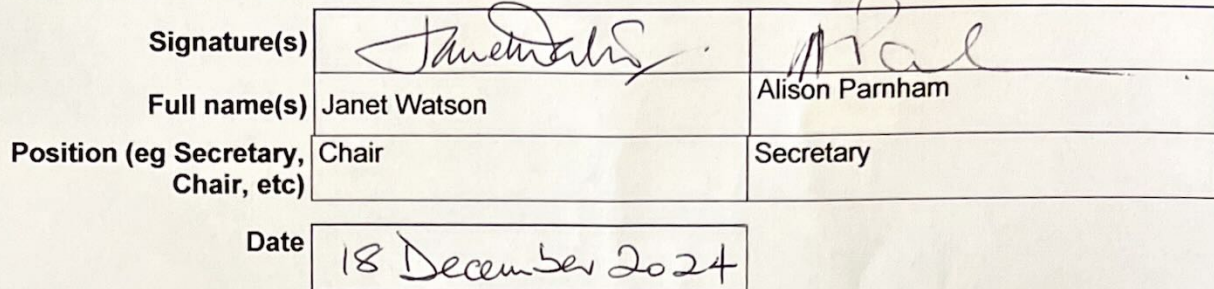 Signature(s)
Full name(s) Janet Watson Alison Parnham
Position (eg Secretary, Chair, etc) Chair Secretary
Date 18 December 2024